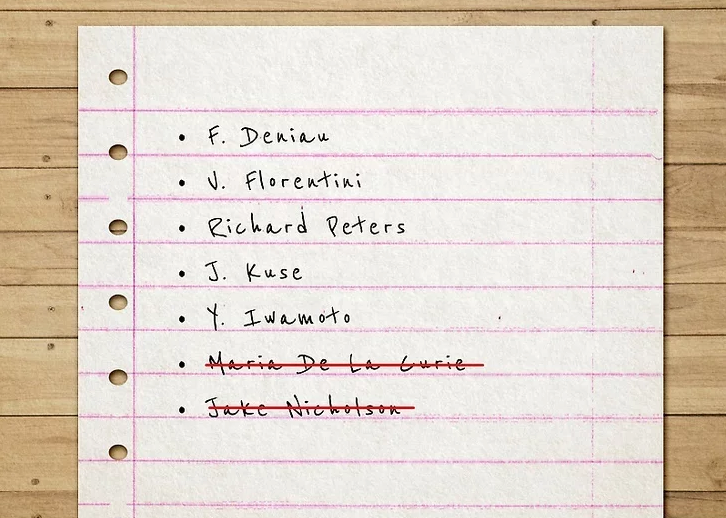 • F. Deniau
• V. Florentini
• Richard Peters
• J. Kuse
• Y. Iwamoto
• Maria De La Curie
• Jake Nicholson